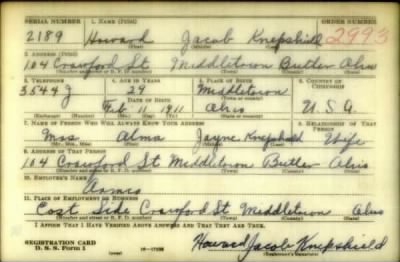 SERIAL NUMBER 1. NAME (Print) ORDER NUMBER
2189 Howard Jacob Knepshield 2993
(First) (Middle) (Last)
2. ADDRESS (Print)
104 Crawford St Middletown Butler Ohio
(Number and street or R. F. D. number) (Town) (County) (State)
3. TELEPHONE 4. AGE IN YEARS 5. PLACE OF BIRTH 6. COUNTRY OF CITIZENSHIP
3544 J 29 Middletown
DATE OF BIRTH (Town or county)
Feb 11 1911 Ohio U.S.A
(Exchange) (Number) (Mo.) (Day) (Yr.) (State or country)
7. NAME OF PERSON WHO WILL ALWAYS KNOW YOUR ADDRESS 8. RELATIONSHIP OF THAT PERSON
Mrs Alma Jayne Knepshield Wife
(Mr., Mrs., Miss) (First) (Middle) (Last)
9. ADDRESS OF THAT PERSON
104 Crawford St Middletown Butler Ohio
(Number and street or R. F. D. number) (Town) (County) (State)
10. EMPLOYER'S NAME
Armco
11. PLACE OF EMPLOYMENT OR BUSINESS
East Side Crawford St Middletown Ohio
(Number and street or R. F. D. number) (Town) (County) (State)
I AFFIRM THAT I HAVE VERIFIED ABOVE ANSWERS AND THAT THEY ARE TRUE.
REGISTRATION CARD
D. S. S. Form 1 Howard Jacob Knepshield
(Registrant's signature)